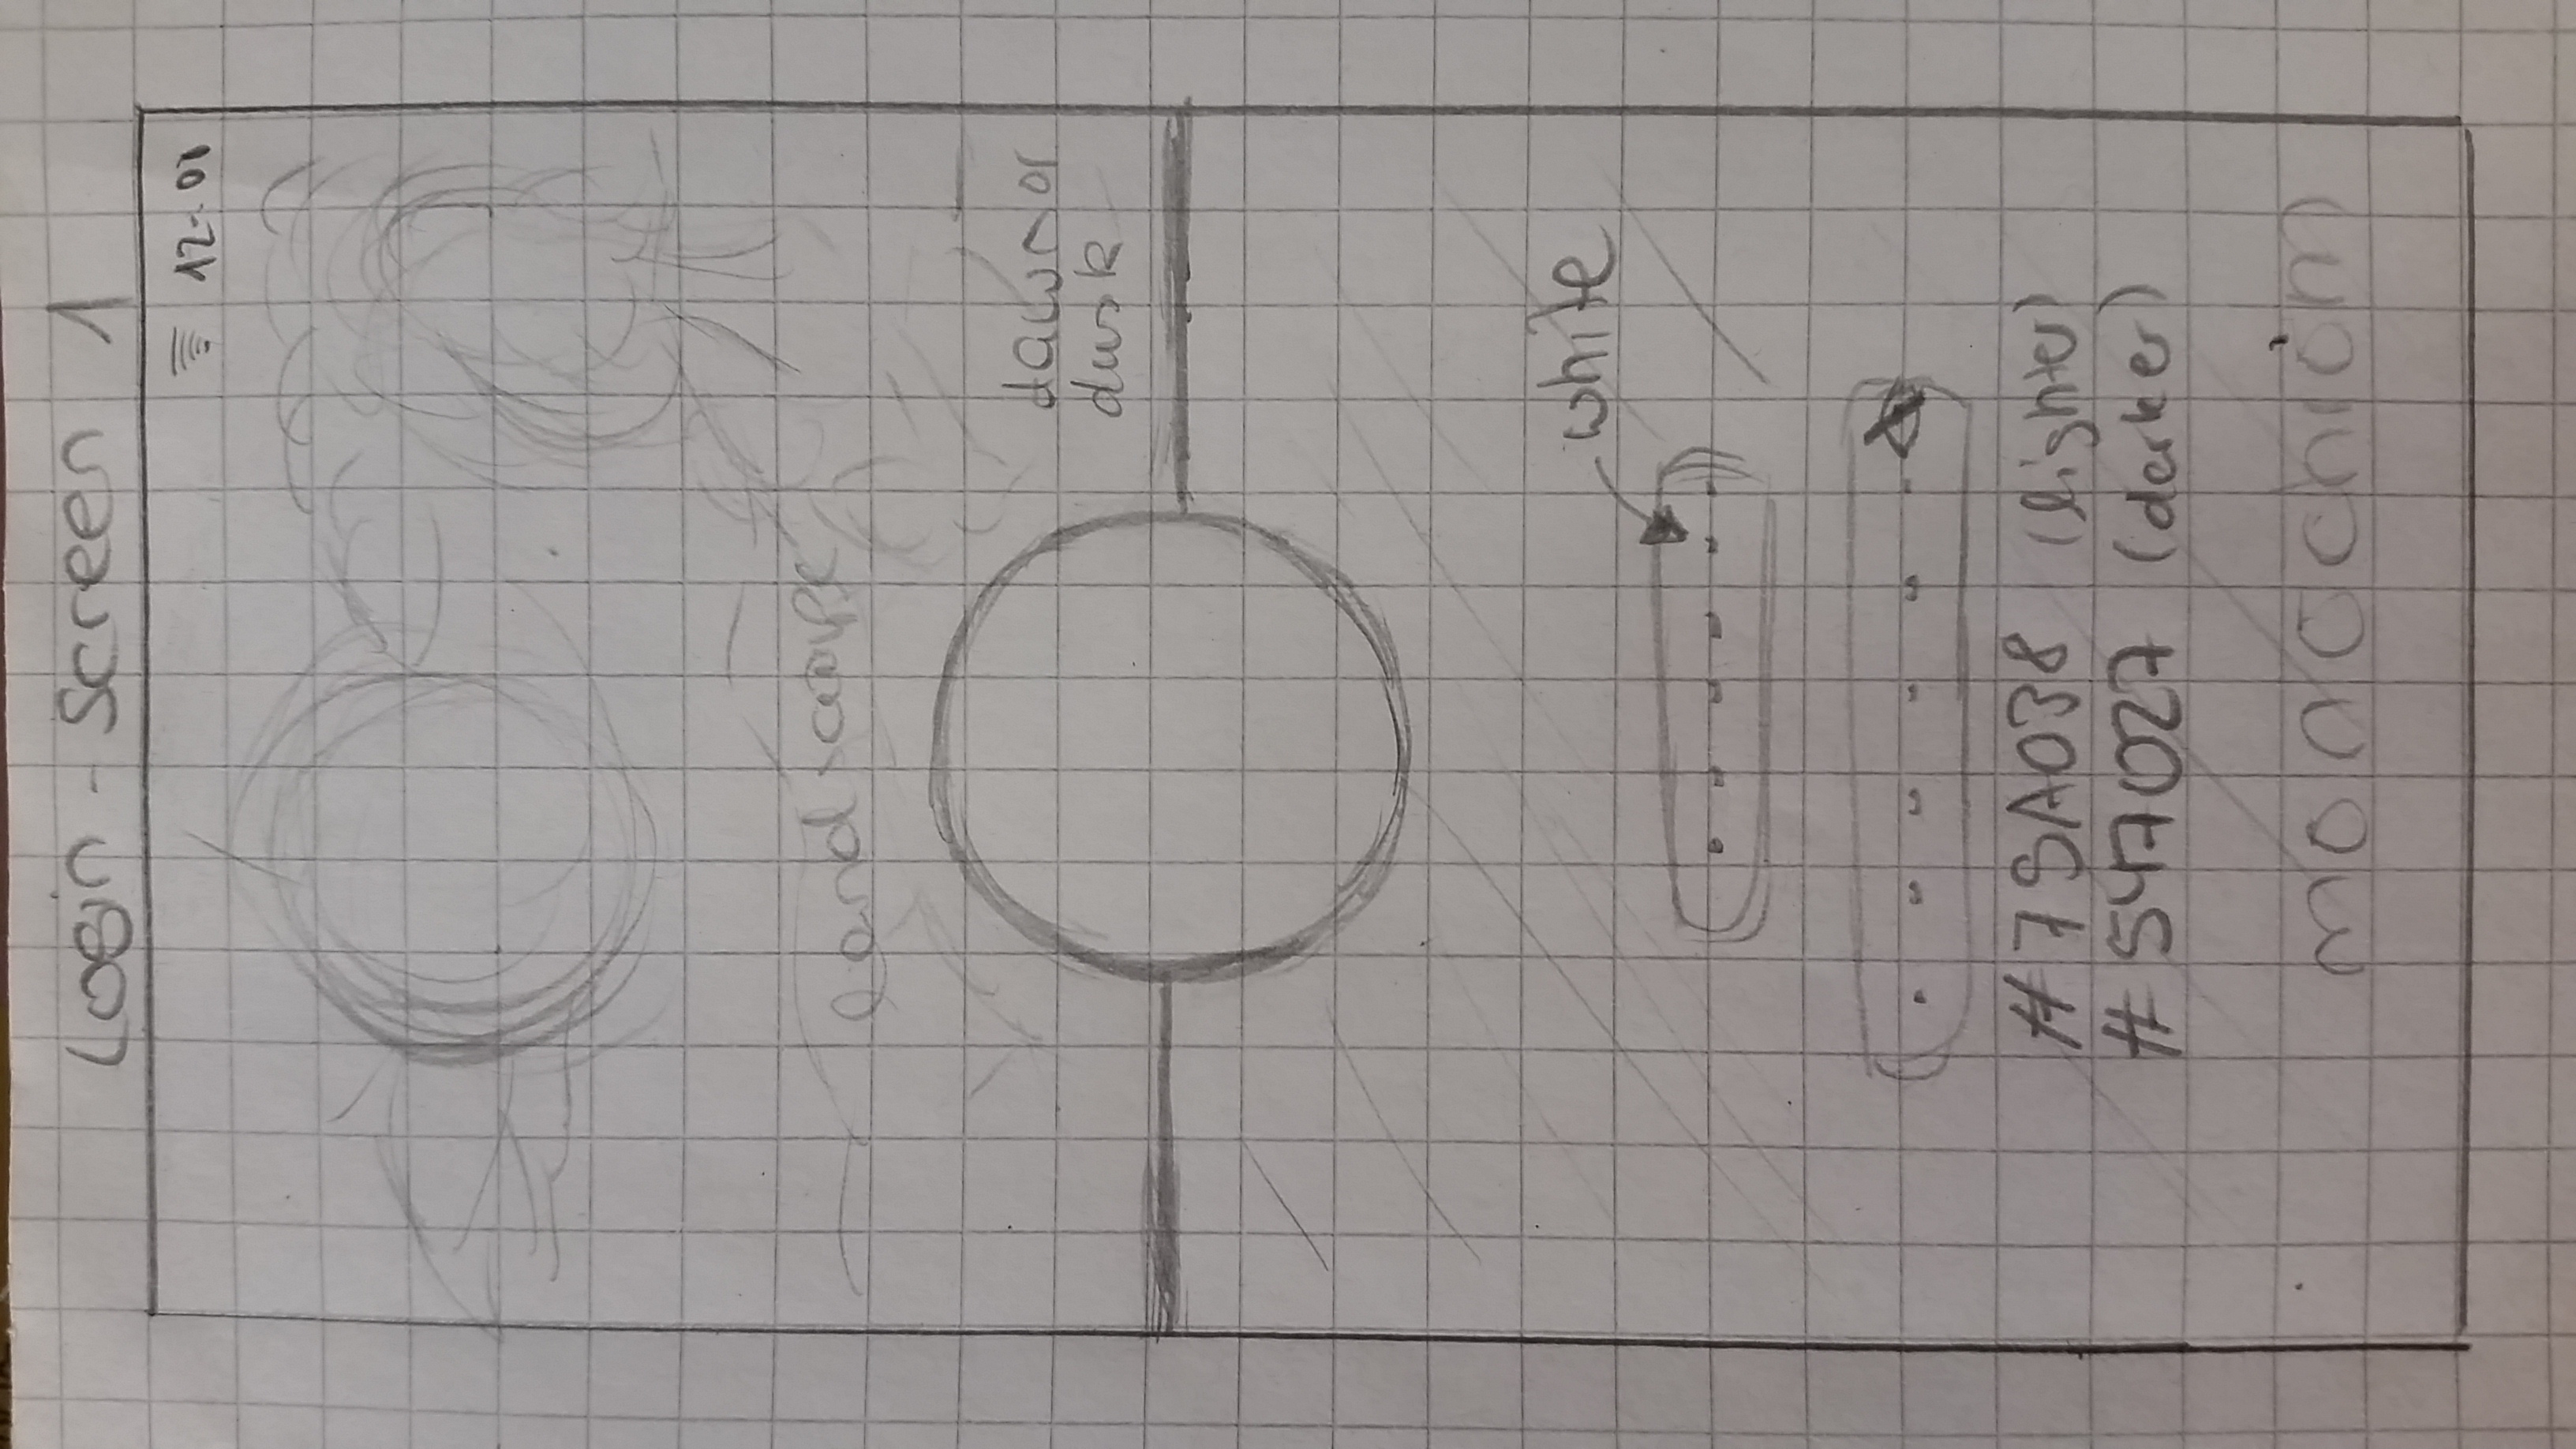 Login - Screen 1
12:00
landscape
dawn or
dusk
white
#79A038 (lighter)
#547027 (darker)
monochrom